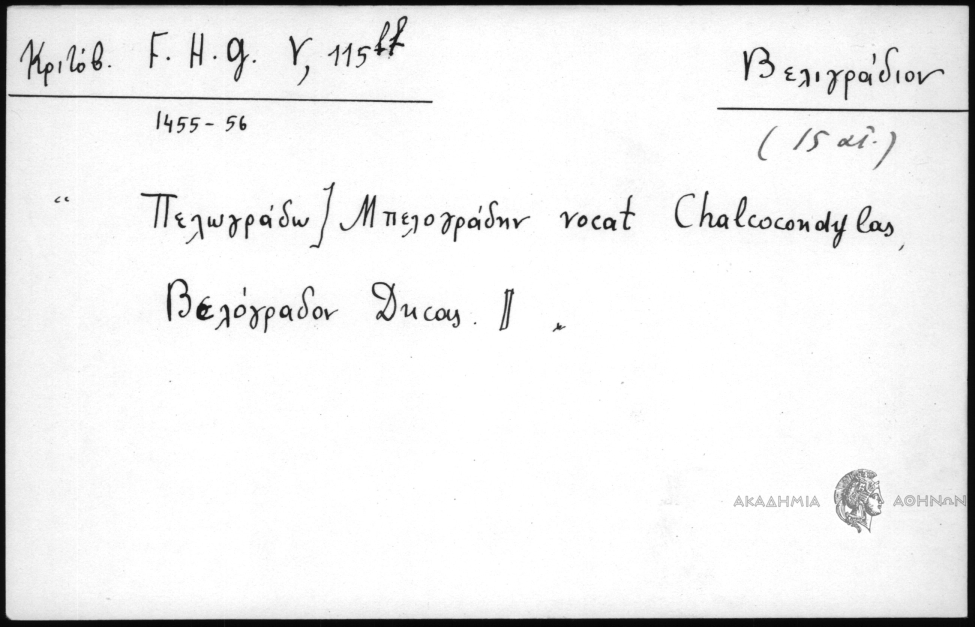 Κριτόβ. F. H. G. V, 115ff
Βελιγράδιον
1455-56
(15 αἰ.)
“ Πελωγράδω] Μπελογράδην vocat Chalcocondylas,
Βελόγραδον Ducas. ]] „
ΑΚΑΔΗΜΙΑ ΑΘΗΝΩΝ